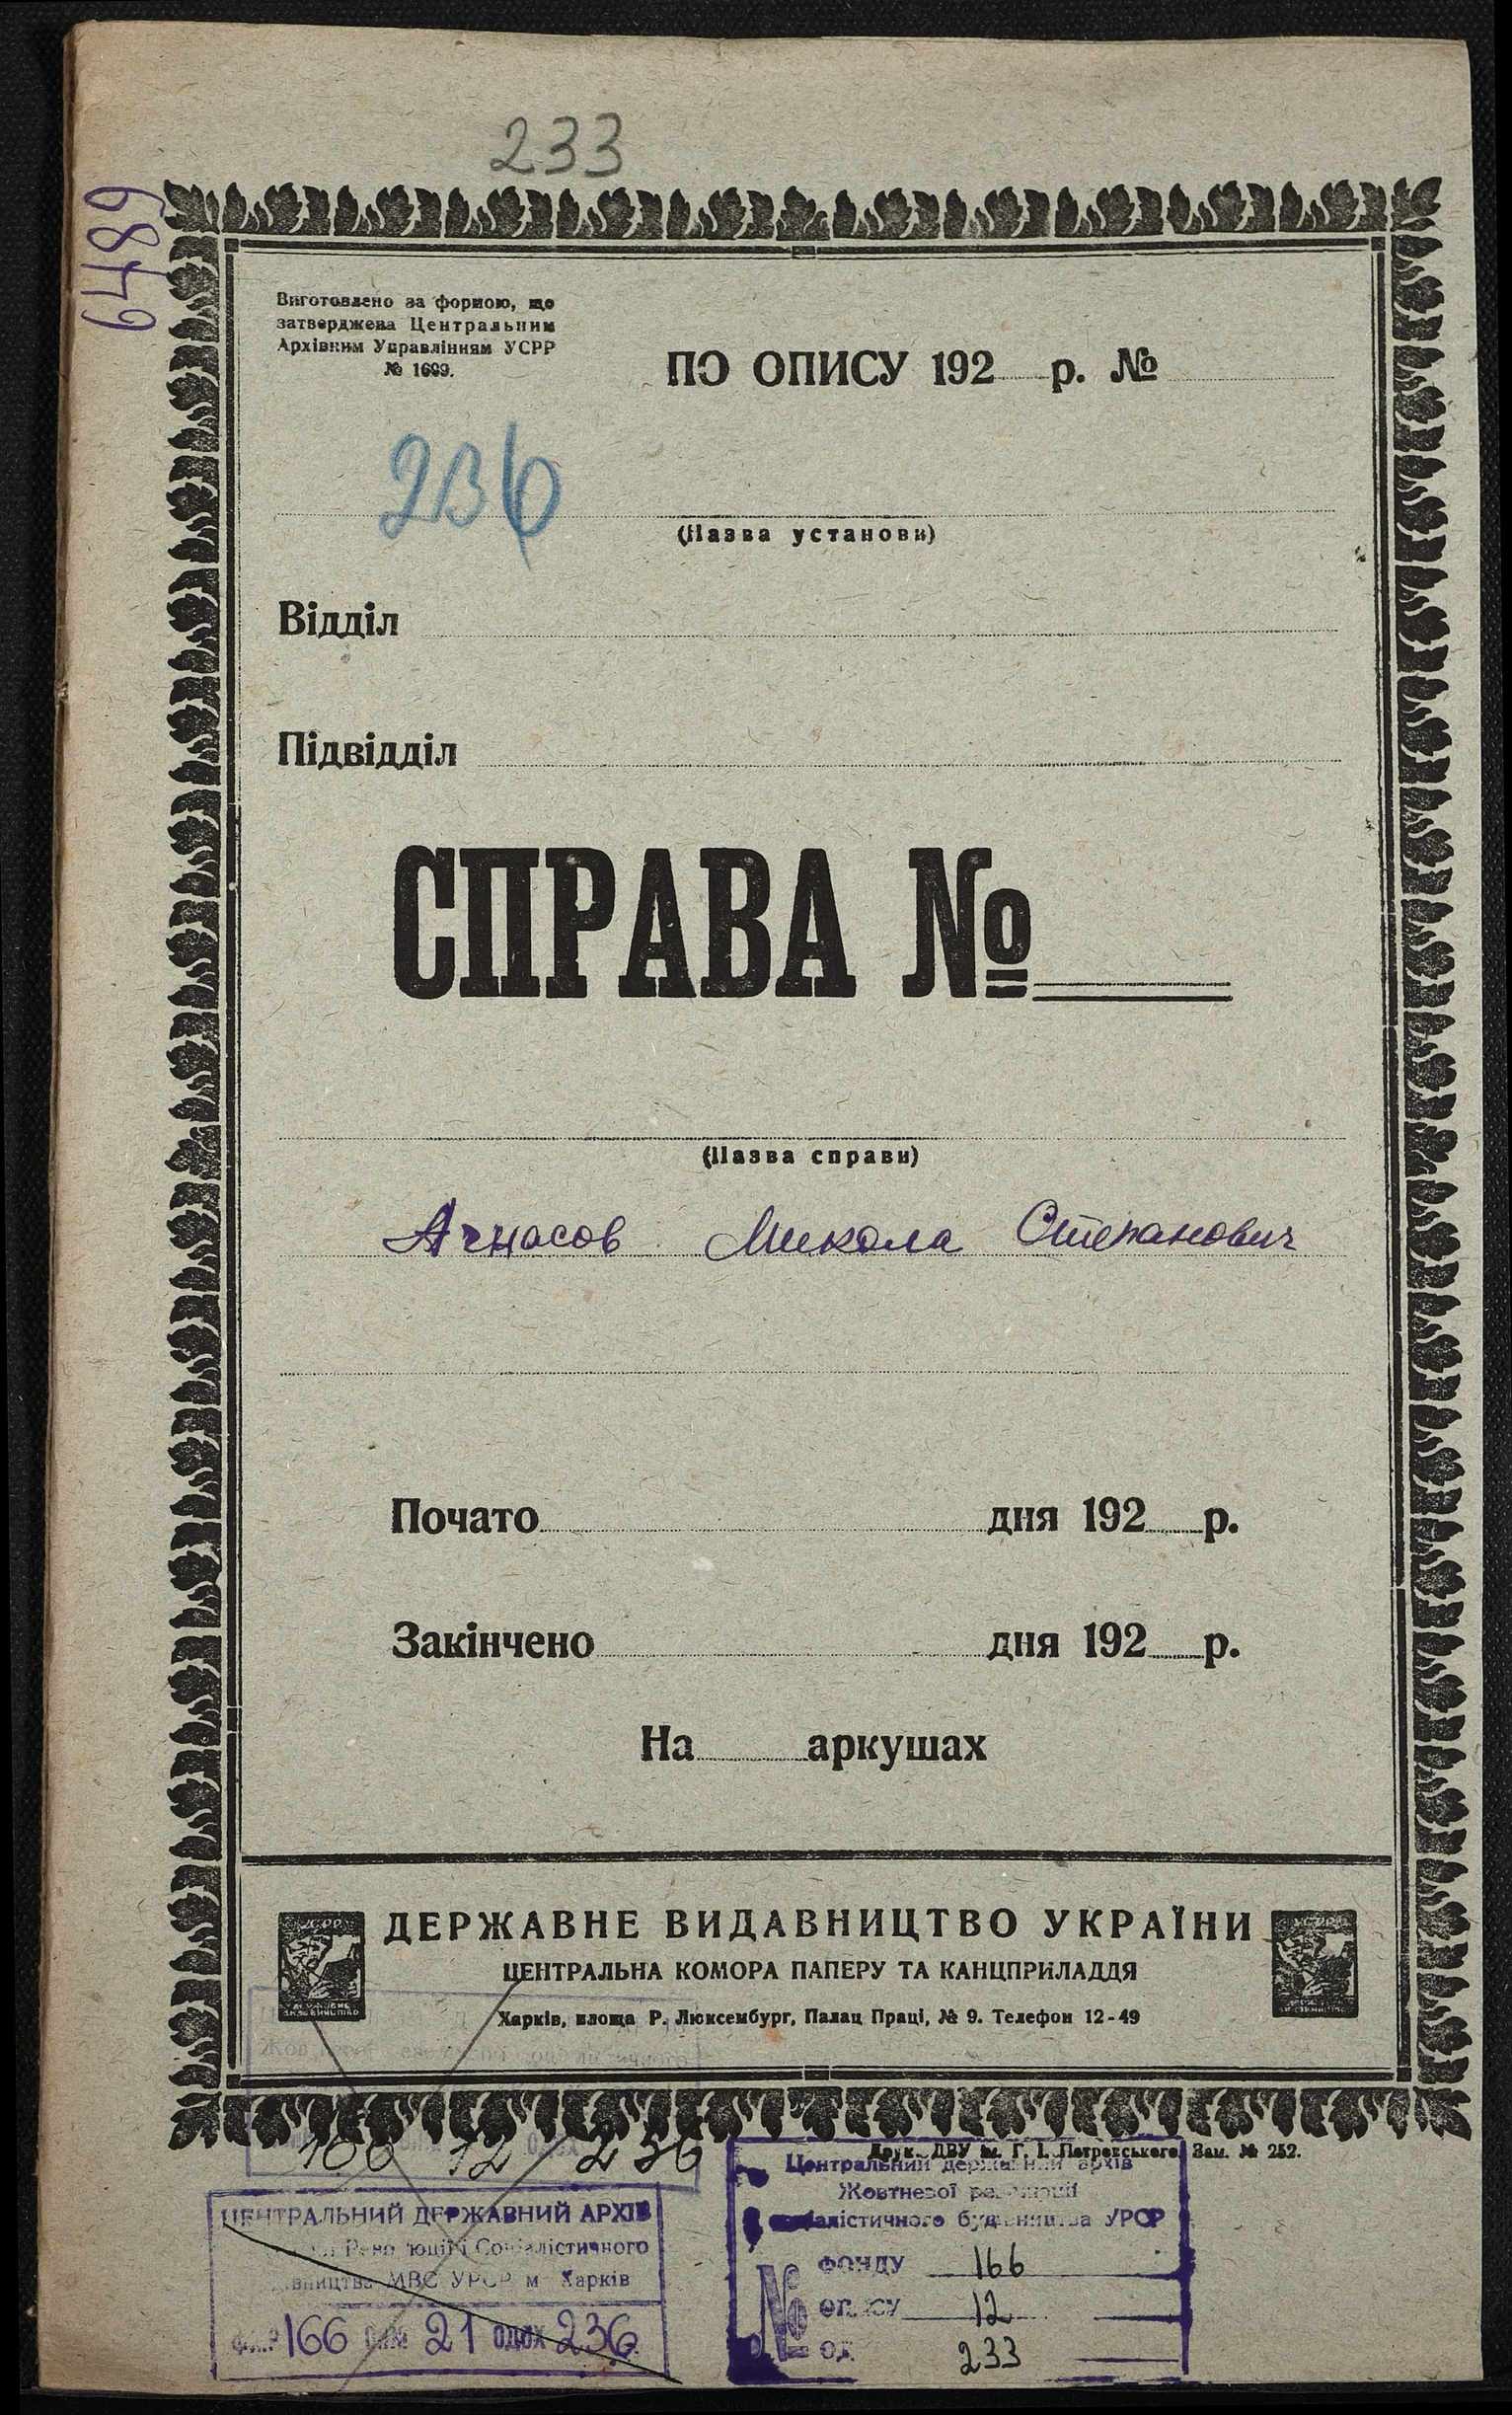 233
6489
Виготовлено за формою, що
затверджена Центральним
Архівним Управлінням УСРР
№ 1699.
ПО ОПИСУ 192 р. №
236
(Назва установи)
Відділ
Підвідділ
СПРАВА №
(Назва справи)
Микола Степанович
Почато дня 192 р.
Закінчено дня 192 р.
На аркушах
ДЕРЖАВНЕ ВИДАВНИЦТВО УКРАЇНИ
ЦЕНТРАЛЬНА КОМОРА ПАПЕРУ ТА КАНЦПРИЛАДДЯ
Харків, площа Р. Люксембург, Палац Праці, № 9. Телефон 12-49
Друк. ДВУ ім. Г. І. Петровського. Зам. № 252.
166 12 236
ЦЕНТРАЛЬНИЙ ДЕРЖАВНИЙ АРХІВ
Революції і Соціалістичного
МВС УРСР м Харків
166 21 236
Центральний державний архів
Жовтневої революції
будівництва УРСР
№ ФОНДУ 166
ОПИСУ 12
ОД 233